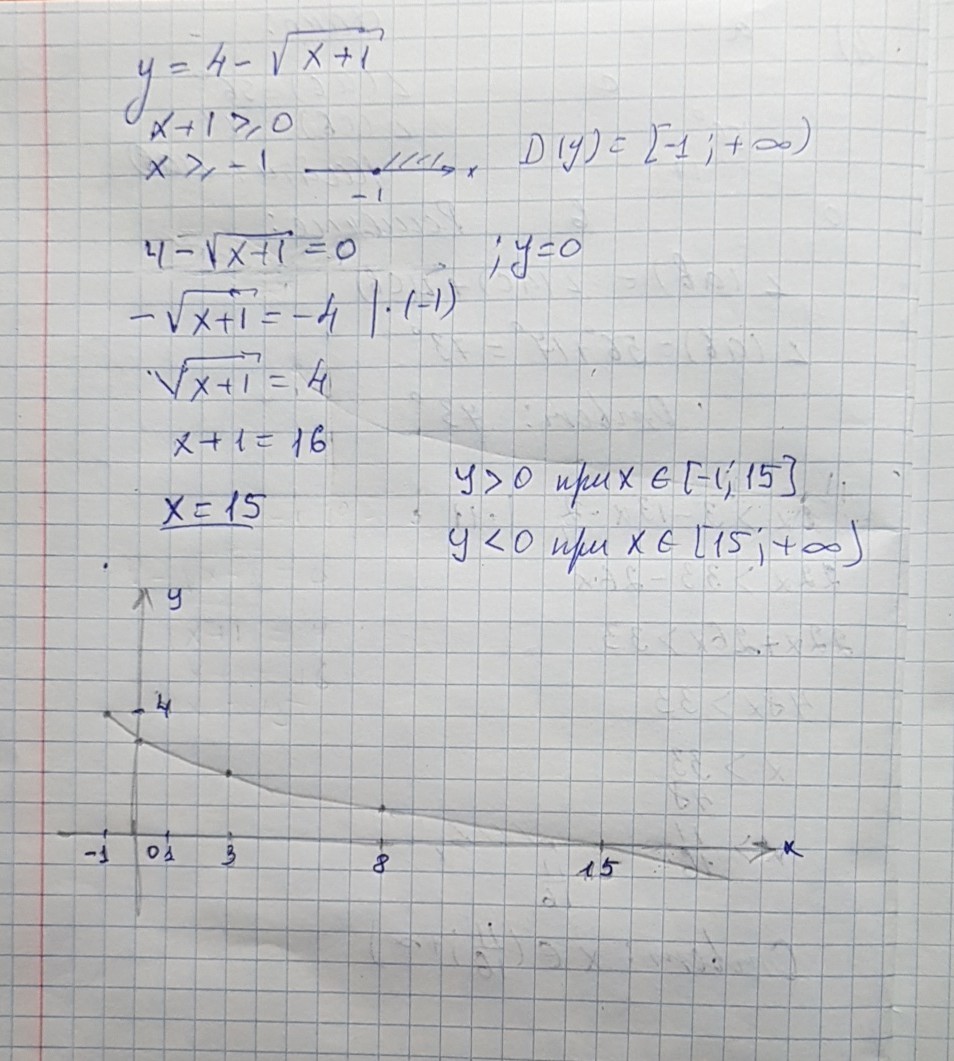 y = 4 - √(x+1)
x+1 ≥ 0
x ≥ -1
x
-1
D(y) = [-1; +∞)
4 - √(x+1) = 0 ; y=0
-√(x+1) = -4 |·(-1)
√(x+1) = 4
x+1 = 16
x = 15
y > 0 при x ∈ [-1; 15]
y < 0 при x ∈ [15; +∞)
y
4
-1 0 1 3 8 15 x